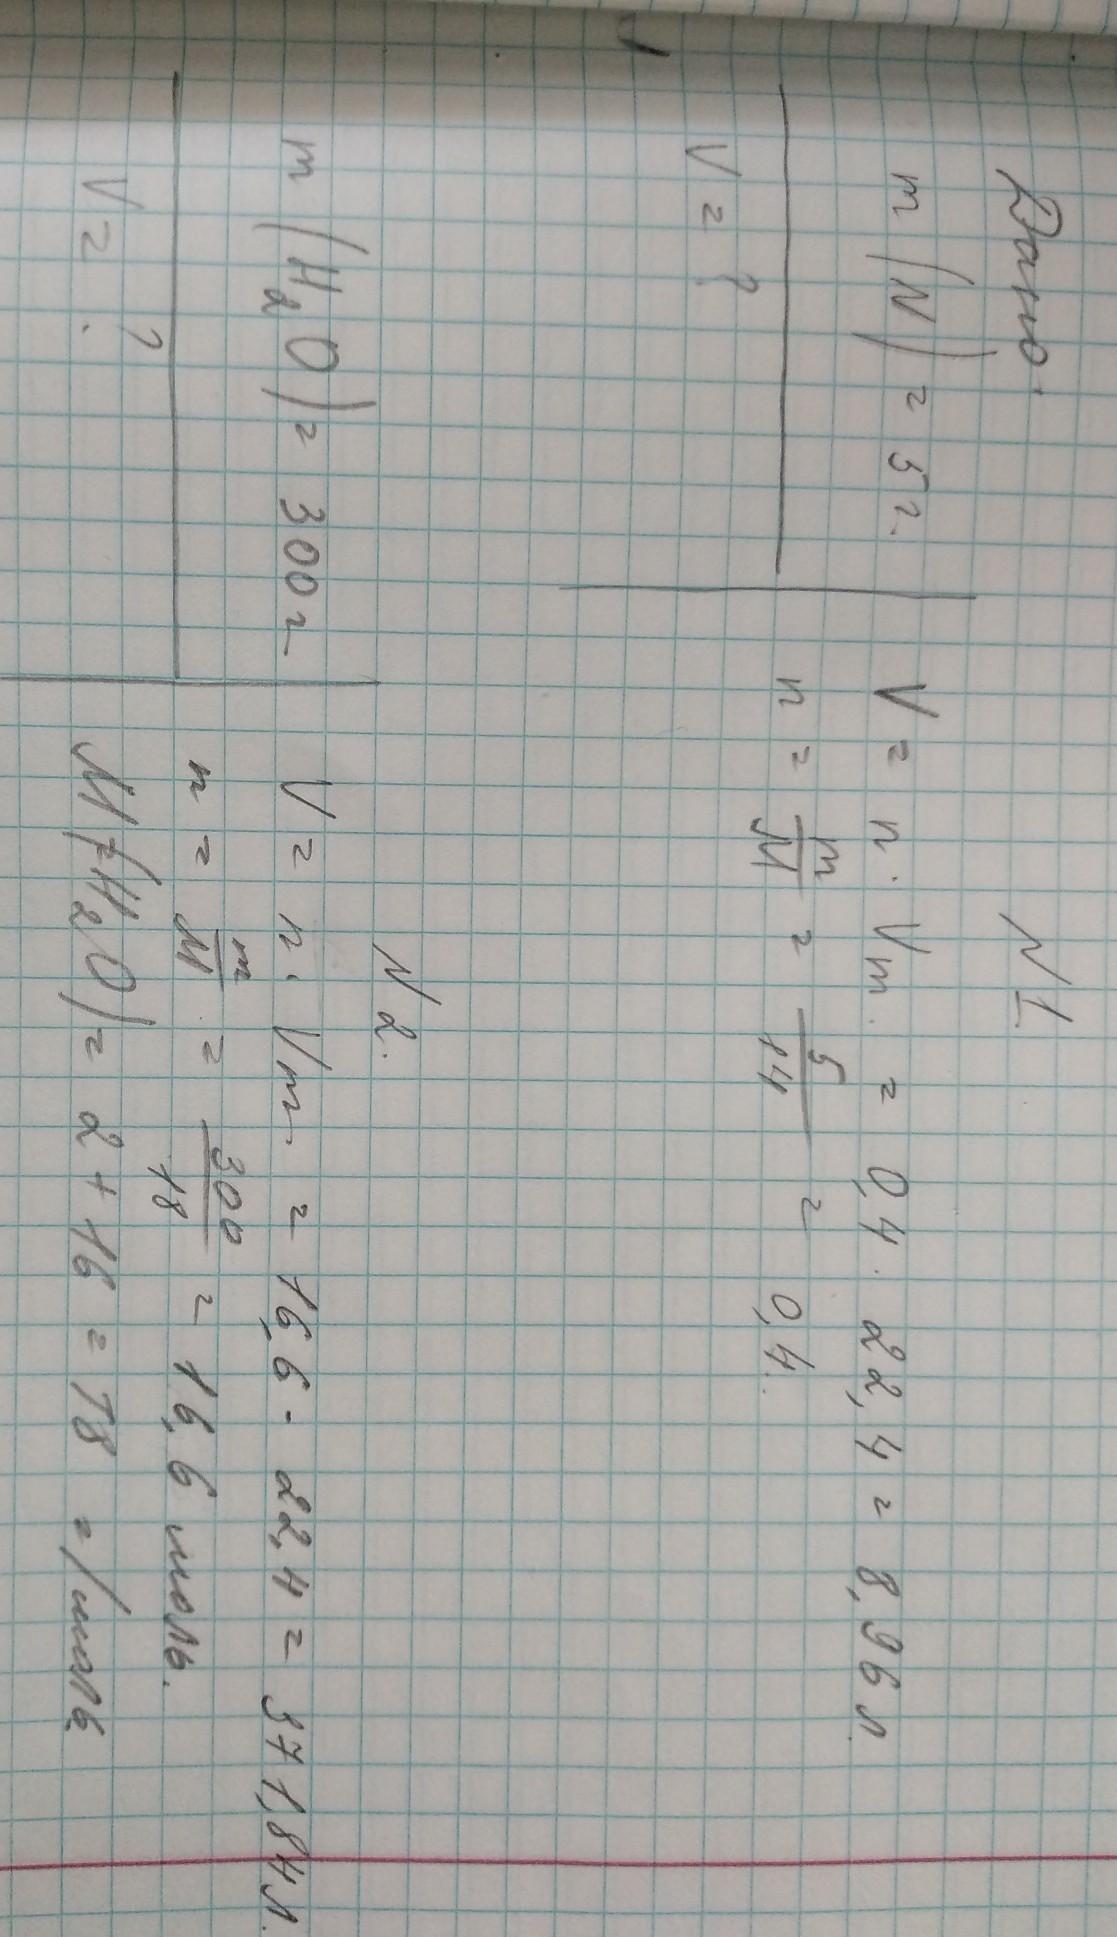 N 1.
Дано:
m (N) = 5 г.
V = ?
V = n · Vm. = 0,4 · 22,4 = 8,96 л.
n = m/M = 5/14 = 0,4.
N 2.
m (H2O) = 300 г
V = ?
V = n · Vm. = 16,6 · 22,4 = 371,84 л.
n = m/M = 300/18 = 16,6 моль.
M (H2O) = 2 + 16 = 18 г/моль